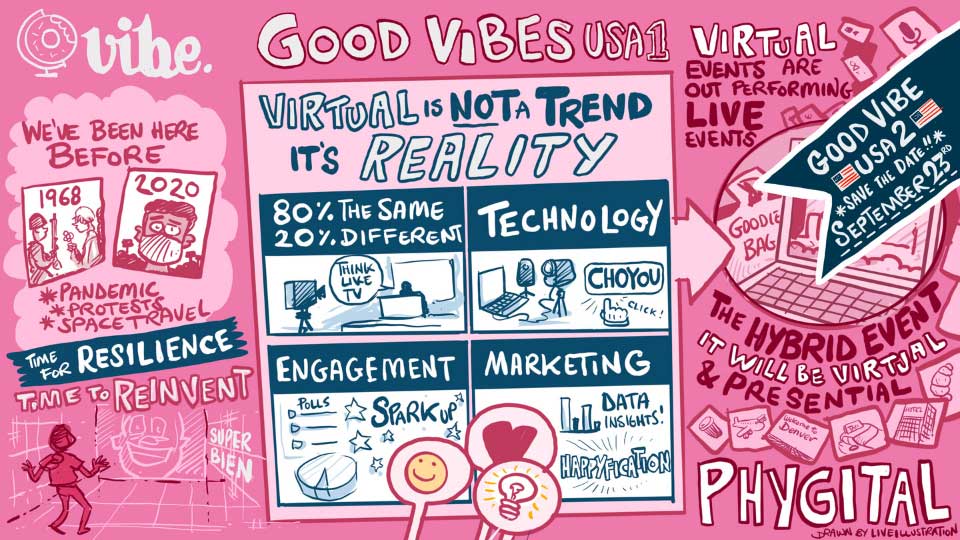 vibe.
GOOD VIBES USA1
WE'VE BEEN HERE
BEFORE
1968
2020
*PANDEMIC
*PROTESTS
*SPACE TRAVEL
TIME FOR RESILIENCE
TIME TO REINVENT
SUPER
BIEN
VIRTUAL IS NOT A TREND
IT'S REALITY
80% THE SAME
20% DIFFERENT
THINK
LIKE
TV
TECHNOLOGY
CHOYOU
CLICK!
ENGAGEMENT
POLLS
SPARKUP
MARKETING
DATA
INSIGHTS!
HAPPYFICATION
VIRTUAL
EVENTS ARE
OUT PERFORMING
LIVE
EVENTS
GOOD VIBE
USA 2
*SAVE THE DATE!!*
SEPTEMBER 23RD
GOODIE
BAG
THE HYBRID EVENT
IT WILL BE VIRTUAL
& PRESENTIAL
Welcome to
Denver
HOTEL
PHYGITAL
DRAWN BY LIVEILLUSTRATION